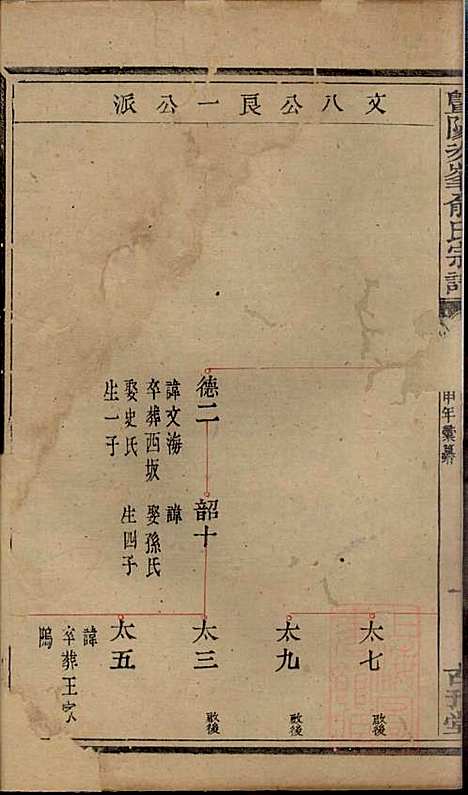 暨陽次峯俞氏宗譜
甲年彙纂
一
古
堂
文八公良一公派
德二
諱文海
卒葬西坂
娶史氏
生一子
韶十
諱
娶孫氏
生四子
太七
啟後
太九
啟後
太三
啟後
太五
諱
卒葬王家
隝